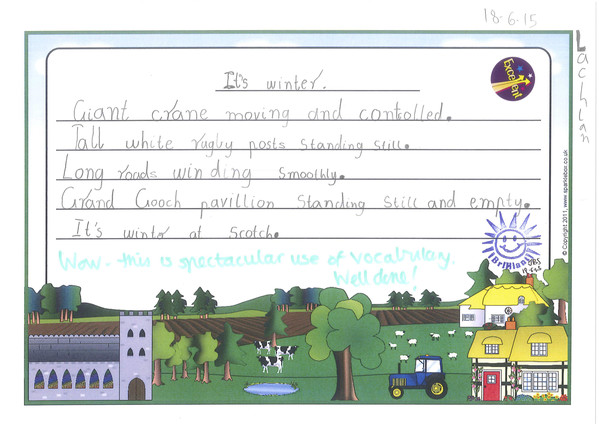 18.6.15
Lachlan
Excellent
It's winter.
Giant crane moving and controlled.
Tall white rugby posts standing still.
Long roads winding smoothly.
Grand Gooch pavillion standing still and empty.
It's winter at Scotch.
Wow - this is spectacular use of vocabulary.
Well done!
Brilliant
© Copyright 2011, www.sparklebox.co.uk